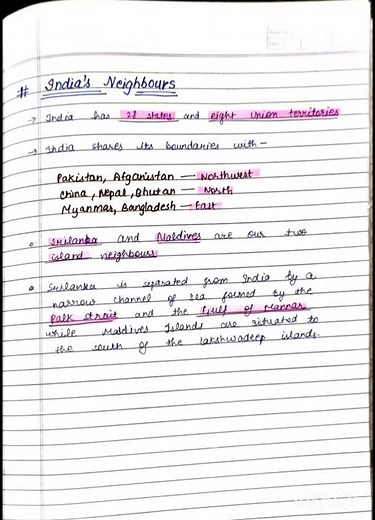 # India's Neighbours
→ India has 28 states and eight Union territories
→ India shares its boundaries with -
Pakistan, Afganistan — Northwest
China, Nepal, Bhutan — North
Myanmar, Bangladesh — East
• Srilanka and Maldives are our two
island neighbours
• Srilanka is seprated from India by a
narrow channel of sea formed by the
Palk strait and the Gulf of Mannar
while Maldives Islands are situated to
the south of the lakshwadeep islands.